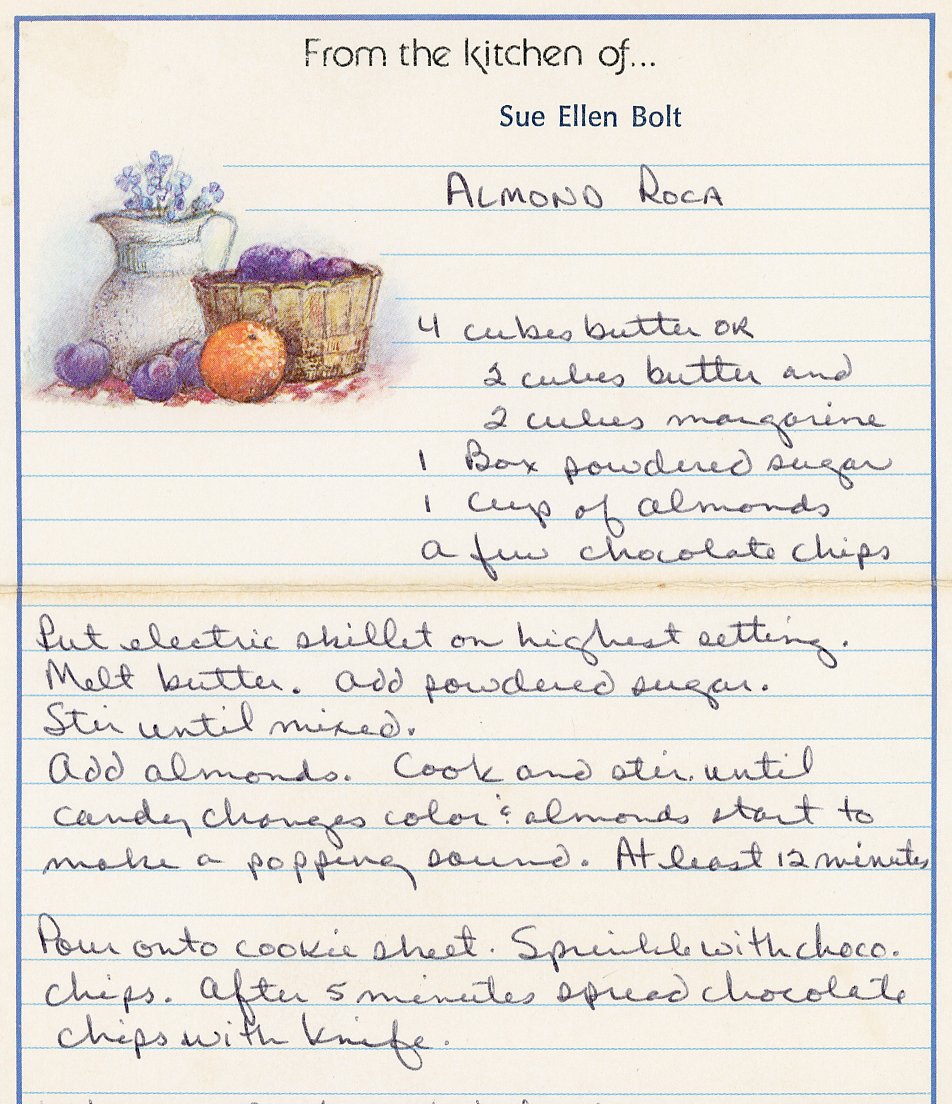 From the kitchen of...
Sue Ellen Bolt
ALMOND ROCA
4 cubes butter OR
2 cubes butter and
2 cubes margarine
1 Box powdered sugar
1 cup of almonds
a few chocolate chips
Put electric skillet on highest setting.
Melt butter. Add powdered sugar.
Stir until mixed.
Add almonds. Cook and stir until
candy changes color & almonds start to
make a popping sound. At least 12 minutes
Pour onto cookie sheet. Sprinkle with choco.
chips. After 5 minutes spread chocolate
chips with knife.